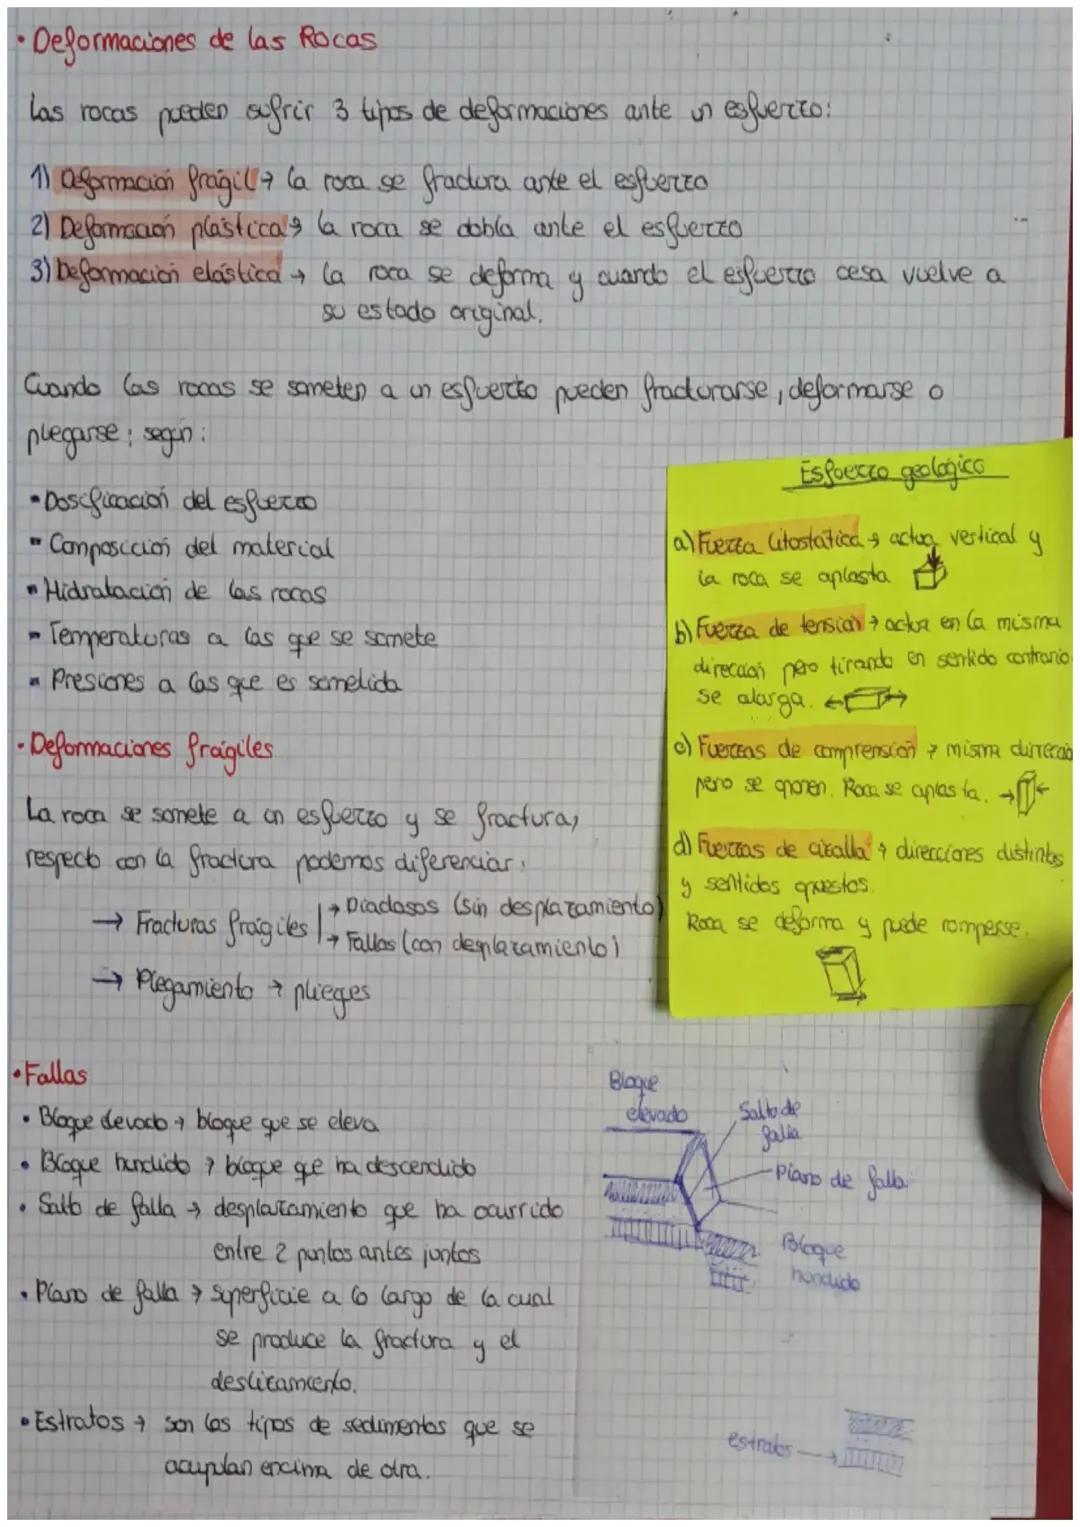 • Deformaciones de las Rocas
Las rocas pueden sufrir 3 tipos de deformaciones ante un esfuerzo:
1) Deformación frágil → La roca se fractura ante el esfuerzo
2) Deformación plástica → La roca se dobla ante el esfuerzo
3) Deformación elástica → La roca se deforma y cuando el esfuerzo cesa vuelve a
su estado original.
Cuando las rocas se someten a un esfuerzo pueden fracturarse, deformarse o
plegarse; según:
- Dosificación del esfuerzo
- Composición del material
- Hidratación de las rocas
- Temperaturas a las que se somete
- Presiones a las que es sometida
• Deformaciones frágiles
La roca se somete a un esfuerzo y se fractura,
respecto con la fractura podemos diferenciar:
→ Fracturas frágiles → Diaclasas (sin desplazamiento)
→ Fallas (con desplazamiento)
→ Plegamiento → plieges
Esfuerzo geológico
a) Fuerza litostática → actua vertical y
la roca se aplasta
b) Fuerza de tensión → actua en la misma
dirección pero tirando en sentido contrario.
Se alarga.
c) Fuerzas de comprensión → misma dirección
pero se oponen. Roca se aplasta.
d) Fuerzas de cizalla → direcciones distintas
y sentidos opuestos.
Roca se deforma y puede romperse.
• Fallas
• Bloque elevado → bloque que se eleva
• Bloque hundido → bloque que ha descendido
• Salto de falla → desplazamiento que ha ocurrido
entre 2 puntos antes juntos
• Plano de falla → superficie a lo largo de la cual
se produce la fractura y el
deslizamiento.
• Estratos → son los tipos de sedimentos que se
acumplan encima de otra.
Bloque
elevado
Salto de
falla
Plano de falla
Bloque
hundido
estratos →